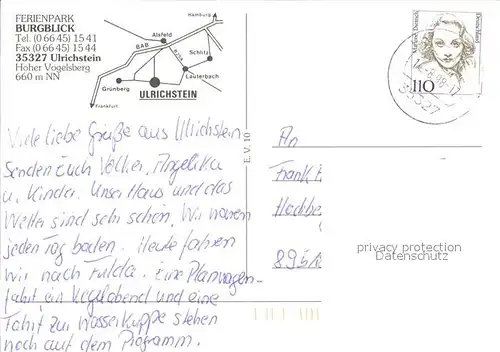 FERIENPARK
BURGBLICK
Tel. (0 66 45) 15 41
Fax (0 66 45) 15 44
35327 Ulrichstein
Hoher Vogelsberg
660 m NN
Hamburg
Alsfeld
BAB
Schlitz
Lauterbach
Grünberg
ULRICHSTEIN
Frankfurt
Marlene Dietrich
Deutschland
110
35327
E. V. 10
Viele liebe Grüße aus Ulrichstein
senden Euch Volker, Angelika
u. Kinder. Unser Haus und das
Wetter sind sehr schön. Wir waren
jeden Tag baden. Heute fahren
wir nach Fulda. Eine Planwagen-
fahrt, ein Kegelabend und eine
Fahrt zur Wasserkuppe stehen
noch auf dem Programm.
An
Frank
895
privacy protection
Datenschutz